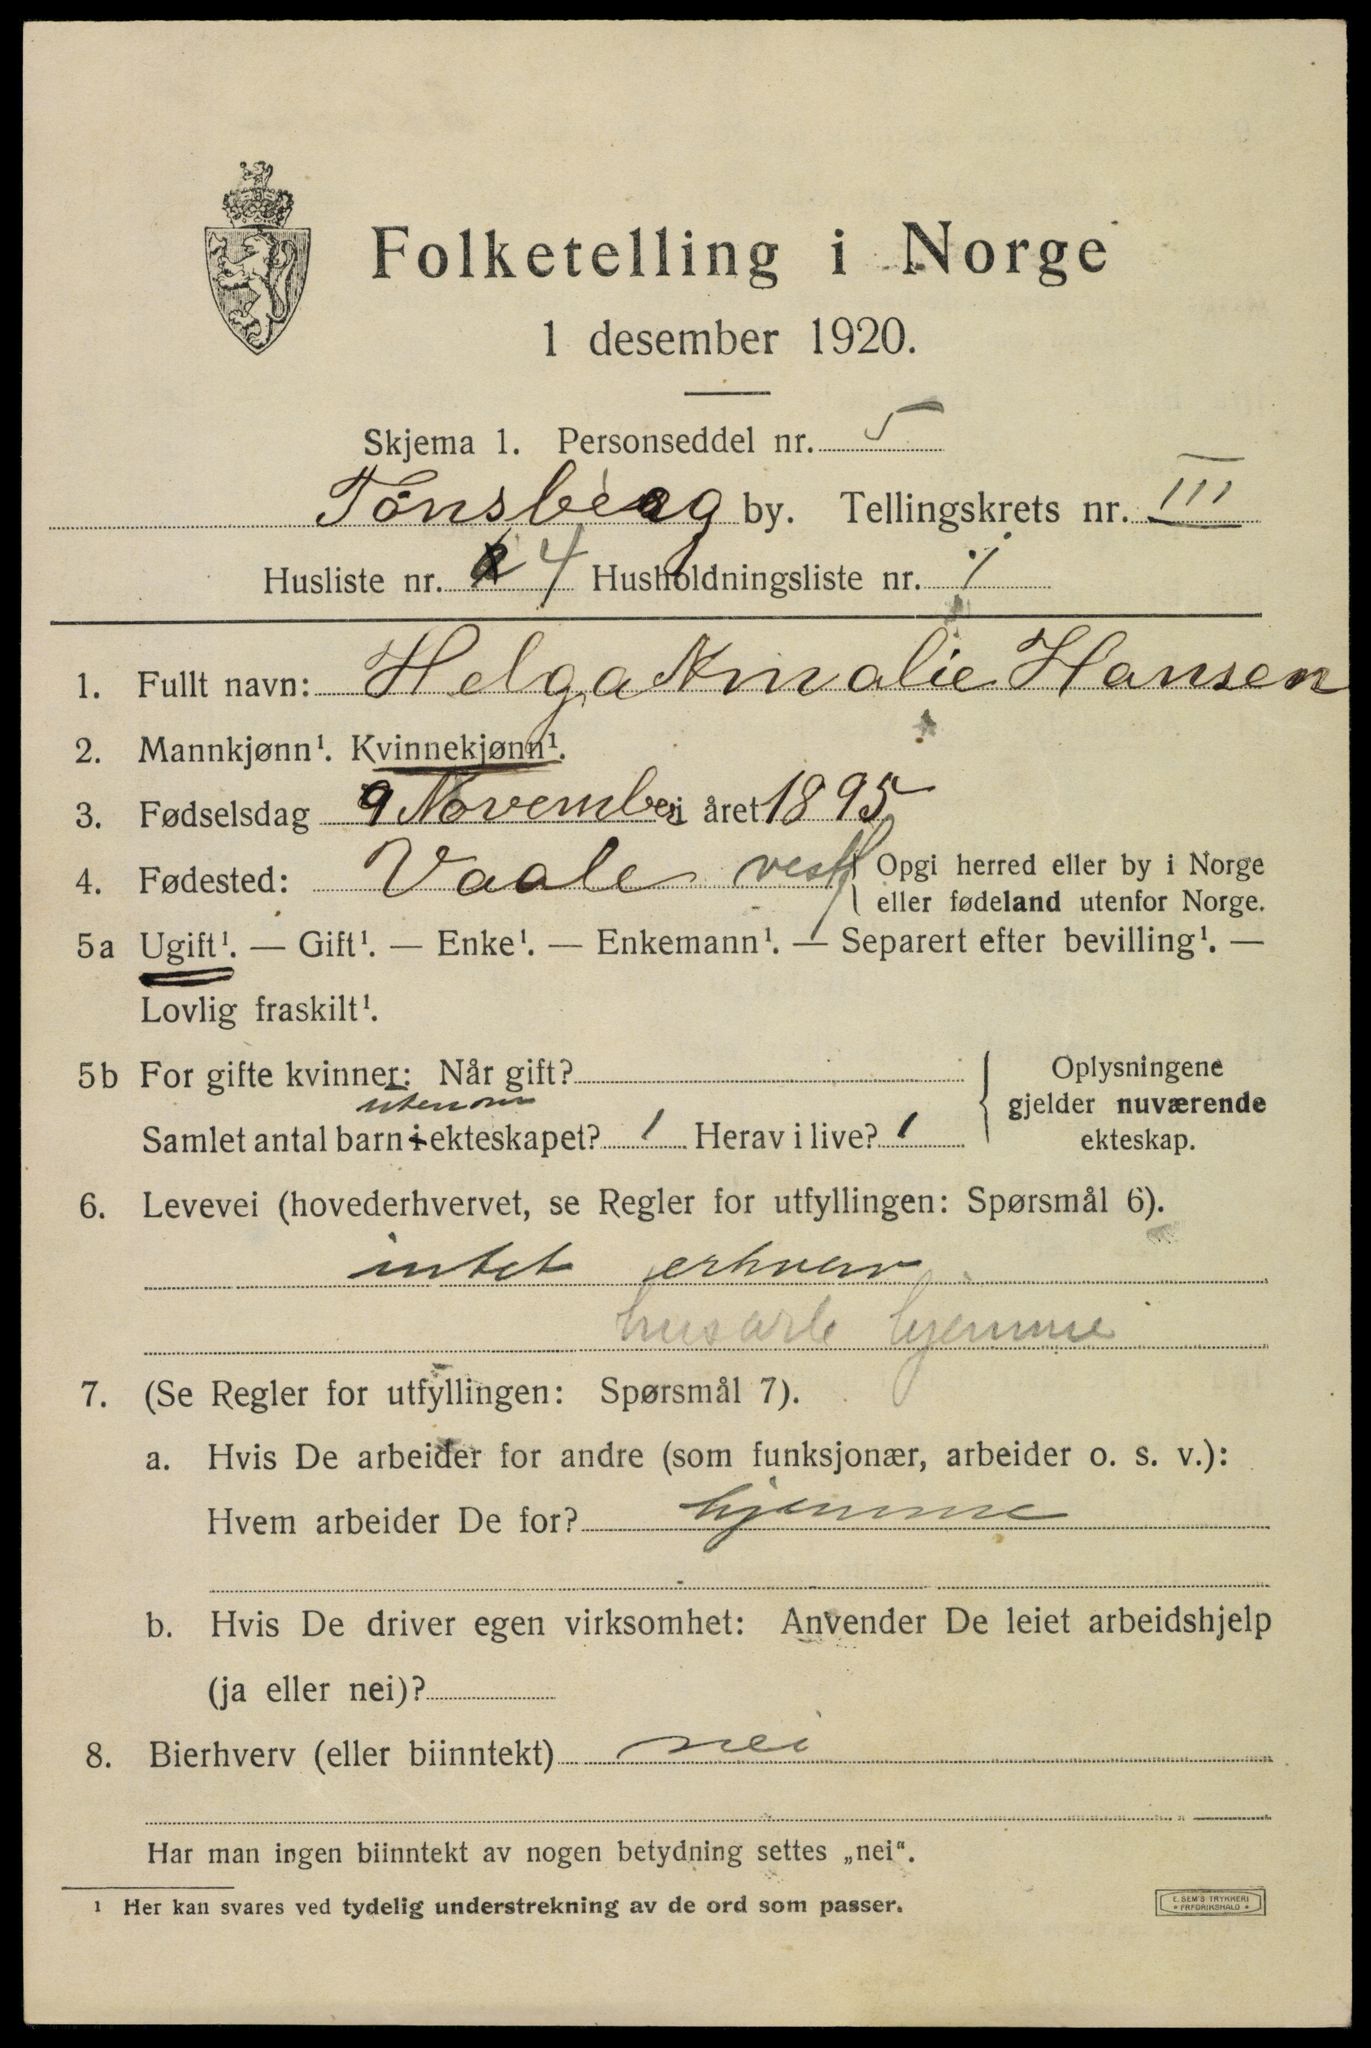 Folketelling i Norge
1 desember 1920.
Skjema 1. Personseddel nr. 5
Tönsberg by. Tellingskrets nr. III
Husliste nr. 4 Husholdningsliste nr. 1
1. Fullt navn: Helga Amalie Hansen
2. Mannkjønn¹. Kvinnekjønn¹.
3. Fødselsdag 9 November i året 1895
4. Fødested: Vaale vestf { Opgi herred eller by i Norge
eller fødeland utenfor Norge.
5a Ugift¹. — Gift¹. — Enke¹. — Enkemann¹. — Separert efter bevilling¹. —
Lovlig fraskilt¹.
5b For gifte kvinner: Når gift?
utenom
Samlet antal barn i ekteskapet? 1 Herav i live? 1
Oplysningene
gjelder nuværende
ekteskap.
6. Levevei (hovederhvervet, se Regler for utfyllingen: Spørsmål 6).
intet erhverv
husarb hjemme
7. (Se Regler for utfyllingen: Spørsmål 7).
a. Hvis De arbeider for andre (som funksjonær, arbeider o. s. v.):
Hvem arbeider De for? hjemme
b. Hvis De driver egen virksomhet: Anvender De leiet arbeidshjelp
(ja eller nei)?
8. Bierhverv (eller biinntekt) nei
Har man ingen biinntekt av nogen betydning settes „nei".
¹ Her kan svares ved tydelig understrekning av de ord som passer.
E. SEM'S TRYKKERI
* FREDRIKSHALD *